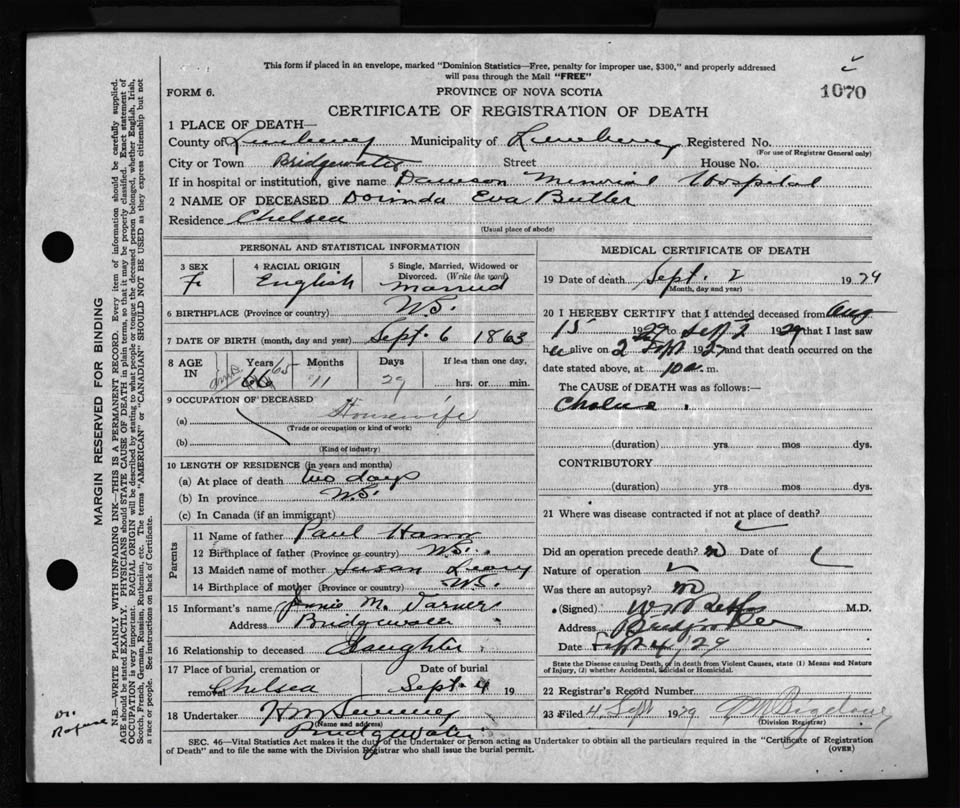 This form if placed in an envelope, marked "Dominion Statistics—Free, penalty for improper use, $300," and properly addressed
will pass through the Mail "FREE"
FORM 6.
PROVINCE OF NOVA SCOTIA
1070
CERTIFICATE OF REGISTRATION OF DEATH
1 PLACE OF DEATH—
County of Lunenburg Municipality of Lunenburg Registered No.
(For use of Registrar General only)
City or Town Bridgewater Street House No.
If in hospital or institution, give name Dawson Memorial Hospital
2 NAME OF DECEASED Dorinda Eva Butler
Residence Chelsea
(Usual place of abode)
PERSONAL AND STATISTICAL INFORMATION
3 SEX F. 4 RACIAL ORIGIN English 5 Single, Married, Widowed or Divorced. (Write the word) Married
6 BIRTHPLACE (Province or country) N.S.
7 DATE OF BIRTH (month, day and year) Sept. 6 1863
8 AGE IN Years 66 65 Months 11 Days 29 If less than one day, hrs. or min.
9 OCCUPATION OF DECEASED
(a) Housewife
(Trade or occupation or kind of work)
(b)
(Kind of industry)
10 LENGTH OF RESIDENCE (in years and months)
(a) At place of death two days
(b) In province N.S.
(c) In Canada (if an immigrant)
Parents
11 Name of father Paul
12 Birthplace of father (Province or country) N.S.
13 Maiden name of mother Susan
14 Birthplace of mother (Province or country) N.S.
15 Informant's name M. Varner
Address Bridgewater
16 Relationship to deceased Daughter
17 Place of burial, cremation or removal Chelsea Date of burial Sept. 4 19
18 Undertaker H M
(Name and address)
Bridgewater
MEDICAL CERTIFICATE OF DEATH
19 Date of death Sept. 2 1929
(Month, day and year)
20 I HEREBY CERTIFY that I attended deceased from Aug
15 1929 to Sept 2 1929 that I last saw
h er alive on 2 Sept 1927 and that death occurred on the
date stated above, at 10 a. m.
The CAUSE of DEATH was as follows:—
(duration) yrs mos dys.
CONTRIBUTORY
(duration) yrs mos dys.
21 Where was disease contracted if not at place of death?
Did an operation precede death? no Date of
Nature of operation
Was there an autopsy? no
(Signed) M.D.
Address Bridgewater
Date Sept 4, '29
State the Disease causing Death, or in death from Violent Causes, state (1) Means and Nature of Injury, (2) whether Accidental, Suicidal or Homicidal.
22 Registrar's Record Number
23 Filed 4 Sept 1929
(Division Registrar)
SEC. 46—Vital Statistics Act makes it the duty of the Undertaker or person acting as Undertaker to obtain all the particulars required in the "Certificate of Registration
of Death" and to file the same with the Division Registrar who shall issue the burial permit.
(OVER)
MARGIN RESERVED FOR BINDING
N.B.—WRITE PLAINLY WITH UNFADING INK—THIS IS A PERMANENT RECORD. Every item of information should be carefully supplied.
AGE should be stated EXACTLY. PHYSICIANS should STATE CAUSE OF DEATH in plain terms, so that it may be properly classified. Exact statement of
OCCUPATION is very important. RACIAL ORIGIN will be described by stating to what people or tongue the deceased person belonged, whether English, Irish,
Scotch, French, German, Russian, Ruthenian, etc. The terms "AMERICAN" or "CANADIAN" SHOULD NOT BE USED as they express citizenship but not
a race or people. See instructions on back of Certificate.